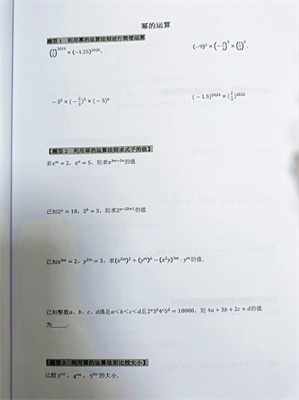 幂的运算
题型1 利用幂的运算法则进行简便运算
× (-1.25)²⁰²⁰;
(-9)³ ×
-3⁵ × × (-5)⁶
(-1.5)²⁰²⁴ ×
【题型2 利用幂的运算法则求式子的值】
若xᵐ = 2，xⁿ = 5，则求 的值
已知2ᵃ = 18，2ᵇ = 3，则求2ᵃ⁻²ᵇ⁺¹的值
已知x³ᵐ = 2，y²ᵐ = 3，求(x²ᵐ)³ + (yᵐ)⁶ − (x²y)³ᵐ · yᵐ的值.
已知整数a、b、c、d满足a<b<c<d且2ᵃ3ᵇ4ᶜ5ᵈ = 10000，则 4a + 3b + 2c + d的值
为____.
【题型3 利用幂的运算法则比较大小】
比较 的大小.